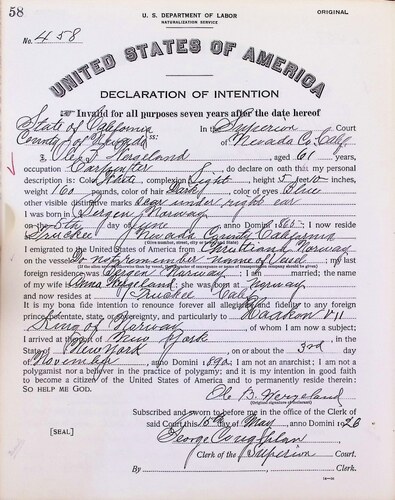 58
U. S. DEPARTMENT OF LABOR
NATURALIZATION SERVICE
ORIGINAL
No. 458
UNITED STATES OF AMERICA
DECLARATION OF INTENTION
Invalid for all purposes seven years after the date hereof
State of California
In the Superior Court
County of Nevada ss:
of Nevada Co. Calif.
I, Ole Hergeland, aged 61 years,
occupation Carpenter, do declare on oath that my personal
description is: Color White, complexion Light, height 5 feet 10 inches,
weight 160 pounds, color of hair Dark, color of eyes Blue
other visible distinctive marks scar under right ear
I was born in Bergen Norway
on the 8th day of June, anno Domini 1865; I now reside
at Truckee, Nevada County, California
(Give number, street, city or town, and State.)
I emigrated to the United States of America from Christiana Norway
on the vessel Do not remember name of vessel; my last
(If the alien arrived otherwise than by vessel, the character of conveyance or name of transportation company should be given)
foreign residence was Bergen Norway. I am married; the name
of my wife is Anna Hergeland; she was born at Norway
and now resides at Truckee Calif.
It is my bona fide intention to renounce forever all allegiance and fidelity to any foreign
prince, potentate, state, or sovereignty, and particularly to Haakon VII
King of Norway, of whom I am now a subject;
I arrived at the port of New York, in the
State of New York, on or about the 3rd day
of November, anno Domini 1890; I am not an anarchist; I am not a
polygamist nor a believer in the practice of polygamy; and it is my intention in good faith
to become a citizen of the United States of America and to permanently reside therein:
SO HELP ME GOD.
Ole B. Hergeland
(Original signature of declarant)
Subscribed and sworn to before me in the office of the Clerk of
said Court this 15th day of May, anno Domini 1926
[SEAL]
George Coughlan
Clerk of the Superior Court.
By, Clerk.